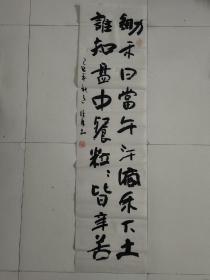 鋤禾日當午汗滴禾下土
誰知盘中餐粒〻皆辛苦